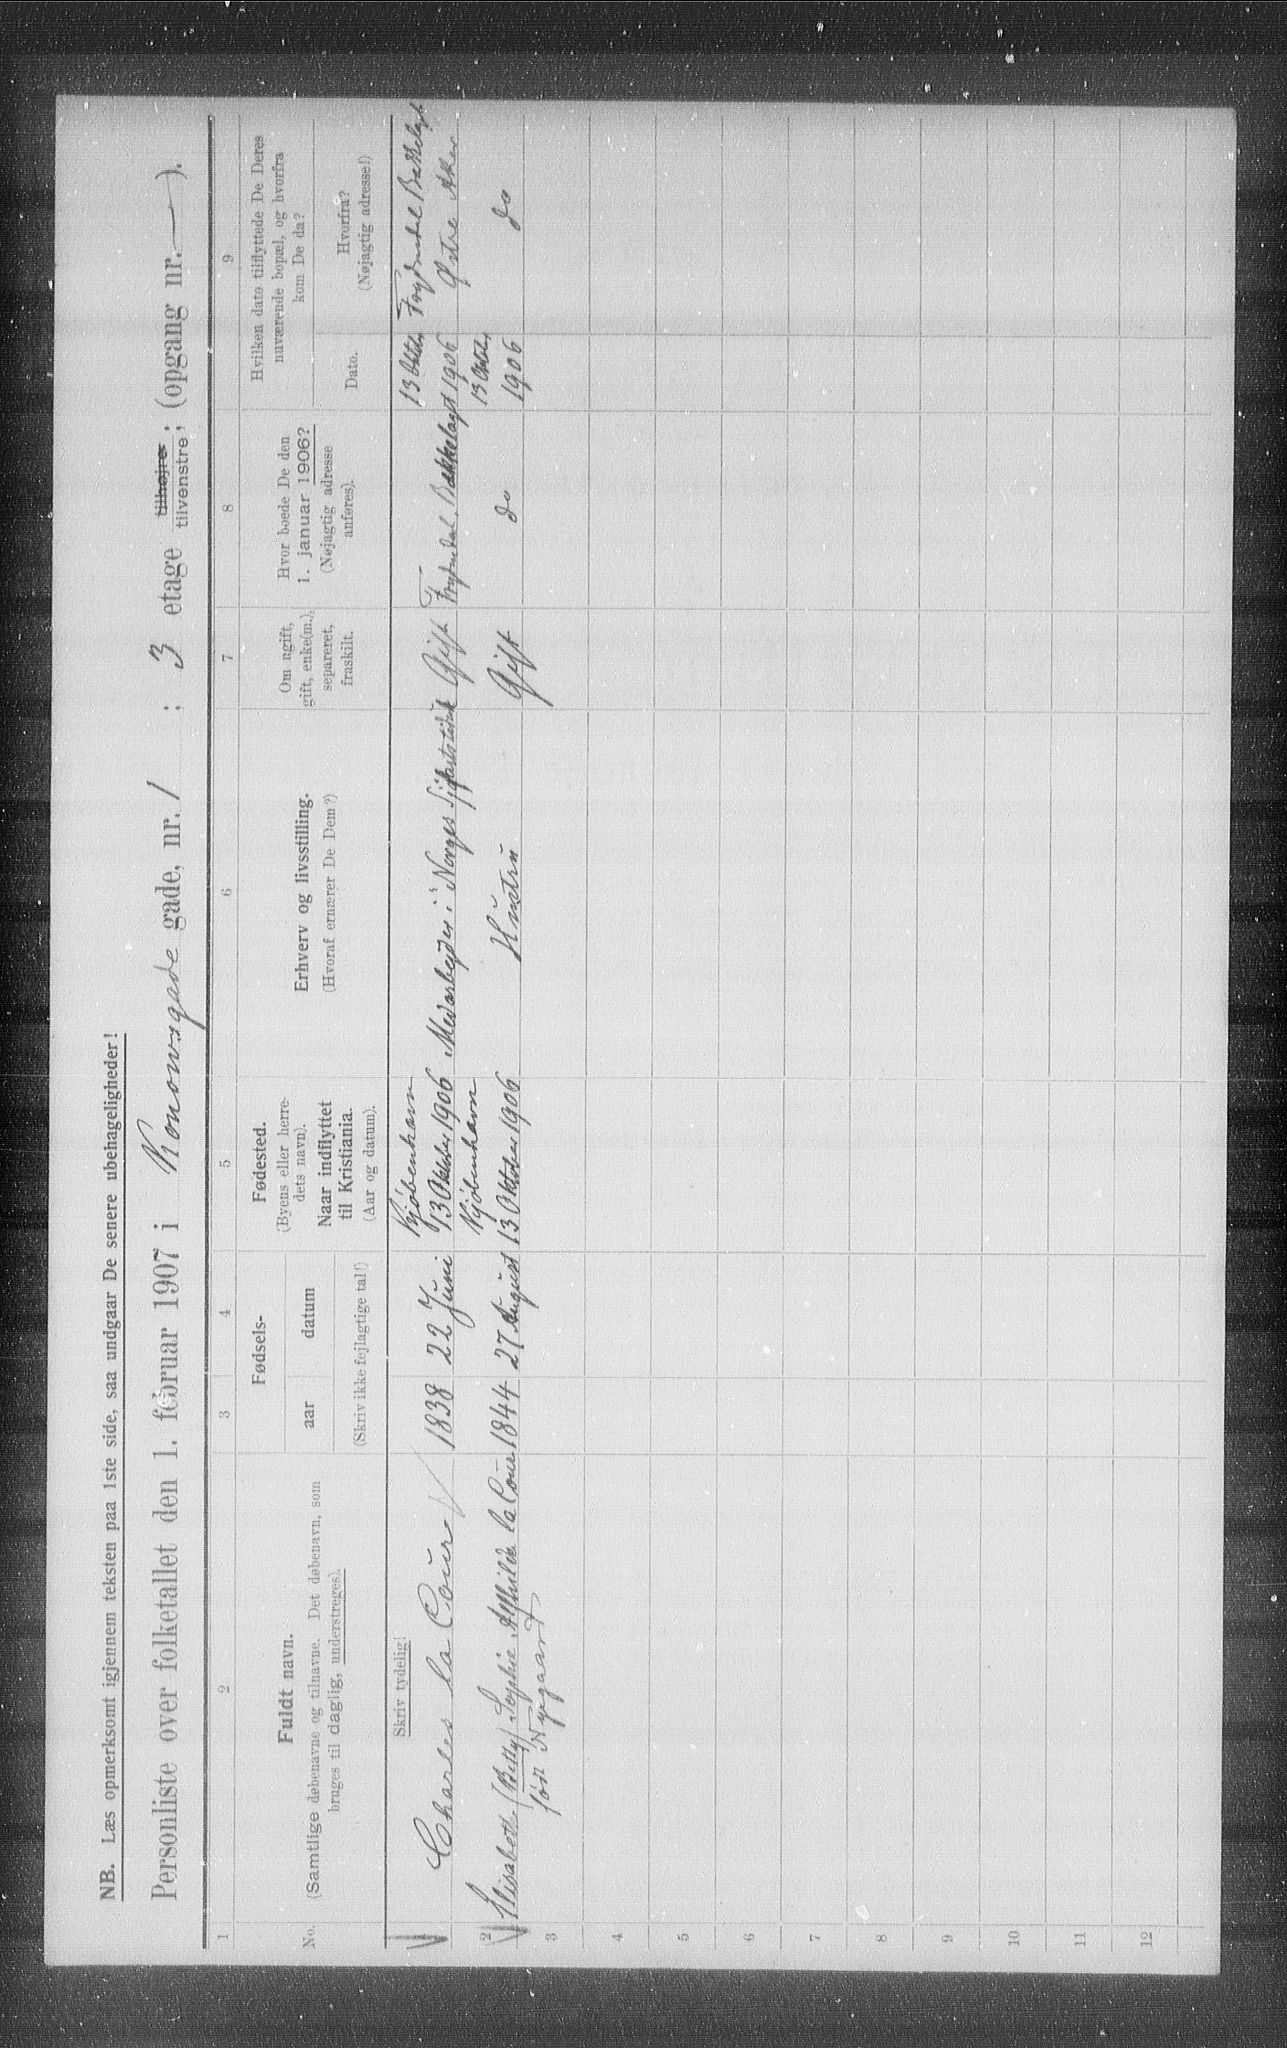 NB. Læs opmerksomt igjennem teksten paa 1ste side, saa undgaar De senere ubehageligheder!
Personliste over folketallet den 1. februar 1907 i Konowsgade gade, nr. 1 ; 3 etage tilhøjre tilvenstre; (opgang nr. —).
1 2 3 4 5 6 7 8 9
No.
Fuldt navn.
(Samtlige døbenavne og tilnavne. Det døbenavn, som
bruges til daglig, understreges).
Fødsels-
aar datum
(Skriv ikke fejlagtige tal!)
Fødested.
(Byens eller herre-
dets navn).
Naar indflyttet
til Kristiania.
(Aar og datum).
Erhverv og livsstilling.
(Hvoraf ernærer De Dem?)
Om ugift,
gift, enke(m.),
separeret,
fraskilt.
Hvor boede De den
1. januar 1906?
(Nøjagtig adresse
anføres).
Hvilken dato tilflyttede De Deres
nuværende bopæl, og hvorfra
kom De da?
Dato.
Hvorfra?
(Nøjagtig adresse!)
Skriv tydelig!
1 Charles la Cour 1838 22 Juni Kjøbenhavn
13 Oktober 1906 Medarbejder i "Norges Gift Bækkelaget 13 Oktbr 1906 Bækkelaget
Østre Aker
2 Elisabeth (Betty) Sophie la Cour 1844 27 August Kjøbenhavn
13 Oktober 1906 Hustru Gift do 13 Oktbr 1906 do
født Nygaard
3
4
5
6
7
8
9
10
11
12